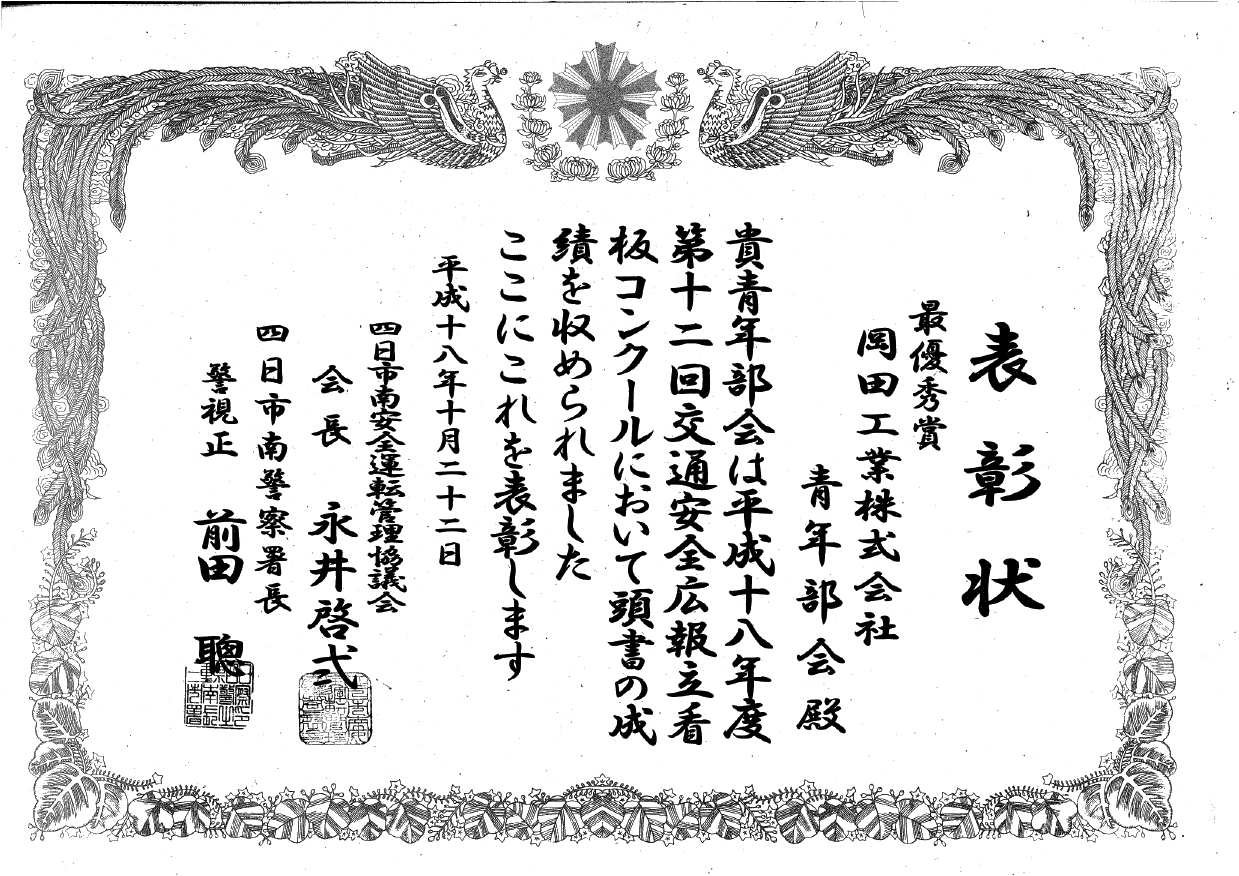 表彰状
最優秀賞
岡田工業株式会社
青年部会殿
貴青年部会は平成十八年度
第十二回交通安全広報立看
板コンクールにおいて頭書の成
績を収められました
ここにこれを表彰します
平成十八年十月二十二日
四日市南安全運転管理協議会
会長 永井啓弍
四日市南警察署長
警視正 前田聰